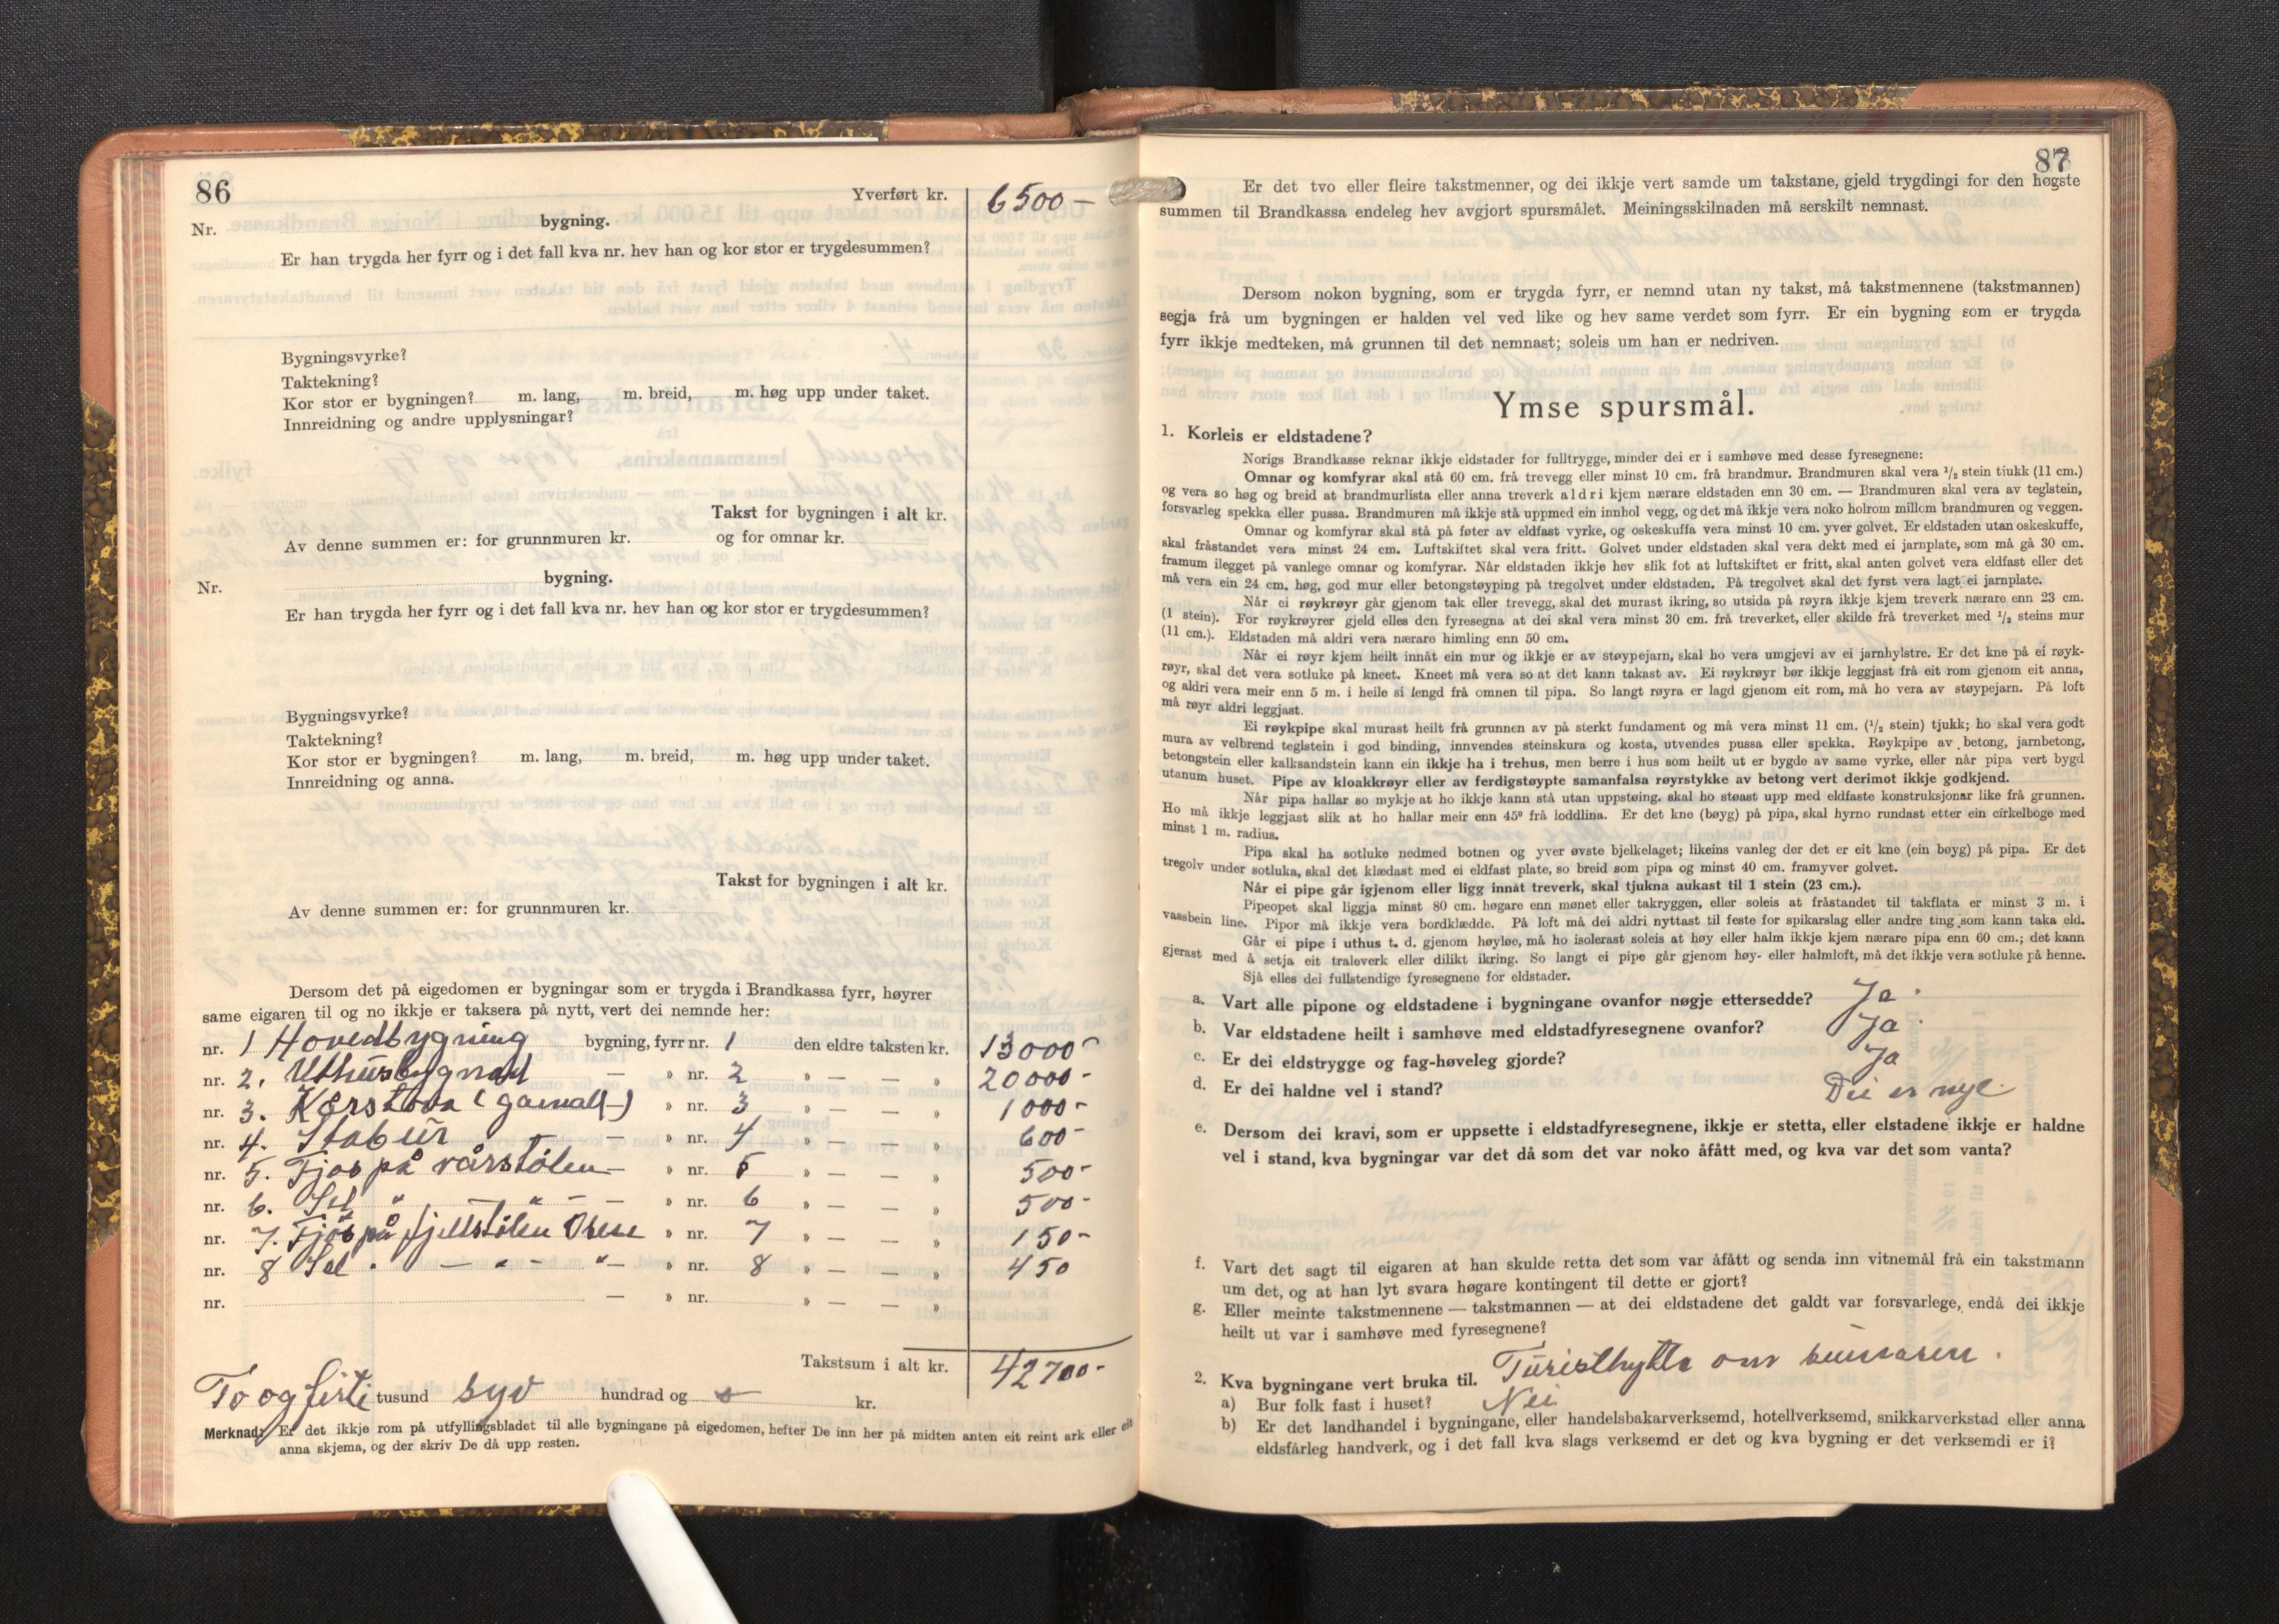 86
Yverført kr. 6500 —
Nr. bygning.
Er han trygda her fyrr og i det fall kva nr. hev han og kor stor er trygdesummen?
Bygningsvyrke?
Taktekning?
Kor stor er bygningen? m. lang, m. breid, m. høg upp under taket.
Innreidning og andre upplysningar?
Takst for bygningen i alt kr.
Av denne summen er: for grunnmuren kr. og for omnar kr.
Nr. bygning.
Er han trygda her fyrr og i det fall kva nr. hev han og kor stor er trygdesummen?
Bygningsvyrke?
Taktekning?
Kor stor er bygningen? m. lang, m. breid, m. høg upp under taket.
Innreidning og anna.
Takst for bygningen i alt kr.
Av denne summen er: for grunnmuren kr.
Dersom det på eigedomen er bygningar som er trygda i Brandkassa fyrr, høyrer
same eigaren til og no ikkje er taksera på nytt, vert dei nemnde her:
nr. 1 Hovedbygning bygning, fyrr nr. 1 den eldre taksten kr. 13000 -
nr. 2. Uthusbygnad — » nr. 2 » — — » 20000 -
nr. 3. Kårstova (gamall) » nr. 3 » — — » 1000 -
nr. 4. Stabur — » nr. 4 » — — » 600 -
nr. 5. Fjos på vårstølen — » nr. 5 » — — » 500 -
nr. 6. Sel " — " — — » nr. 6 » — — » 500 -
nr. 7. Fjøs på fjellstølen » nr. 7 » — — » 150 -
nr. 8 Sel " — " — " — » nr. 8 » — — » 450
nr. — » nr. » — — »
Takstsum i alt kr. 42700 -
To og firti tusund syv hundrad og kr.
Merknad: Er det ikkje rom på utfyllingsbladet til alle bygningane på eigedomen, hefter De inn her på midten anten eit reint ark eller eit
anna skjema, og der skriv De då upp resten.
87
Er det tvo eller fleire takstmenner, og dei ikkje vert samde um takstane, gjeld trygdingi for den høgste
summen til Brandkassa endeleg hev avgjort spursmålet. Meiningsskilnaden må serskilt nemnast.
Dersom nokon bygning, som er trygda fyrr, er nemnd utan ny takst, må takstmennene (takstmannen)
segja frå um bygningen er halden vel ved like og hev same verdet som fyrr. Er ein bygning som er trygda
fyrr ikkje medteken, må grunnen til det nemnast; soleis um han er nedriven.
Ymse spursmål.
1. Korleis er eldstadene?
Norigs Brandkasse reknar ikkje eldstader for fulltrygge, minder dei er i samhøve med desse fyresegnene:
Omnar og komfyrar skal stå 60 cm. frå trevegg eller minst 10 cm. frå brandmur. Brandmuren skal vera ½ stein tjukk (11 cm.)
og vera so høg og breid at brandmurlista eller anna treverk aldri kjem nærare eldstaden enn 30 cm. — Brandmuren skal vera av teglstein,
forsvarleg spekka eller pussa. Brandmuren må ikkje stå uppmed ein innhol vegg, og det må ikkje vera noko holrom millom brandmuren og veggen.
Omnar og komfyrar skal stå på føter av eldfast vyrke, og oskeskuffa vera minst 10 cm. yver golvet. Er eldstaden utan oskeskuffe,
skal fråstandet vera minst 24 cm. Luftskiftet skal vera fritt. Golvet under eldstaden skal vera dekt med ei jarnplate, som må gå 30 cm.
framum ilegget på vanlege omnar og komfyrar. Når eldstaden ikkje hev slik fot at luftskiftet er fritt, skal anten golvet vera eldfast eller det
må vera ein 24 cm. høg, god mur eller betongstøyping på tregolvet under eldstaden. På tregolvet skal det fyrst vera lagt ei jarnplate.
Når ei røykrøyr går gjenom tak eller trevegg, skal det murast ikring, so utsida på røyra ikkje kjem treverk nærare enn 23 cm.
(1 stein). For røykrøyrer gjeld elles den fyresegna at dei skal vera minst 30 cm. frå treverket, eller skilde frå treverket med ½ steins mur
(11 cm.). Eldstaden må aldri vera nærare himling enn 50 cm.
Når ei røyr kjem heilt innåt ein mur og ikkje er av støypejarn, skal ho vera umgjevi av ei jarnhylstre. Er det kne på ei røyk-
røyr, skal det vera sotluke på kneet. Kneet må vera so at det kann takast av. Ei røykrøyr bør ikkje leggjast frå eit rom gjenom eit anna,
og aldri vera meir enn 5 m. i heile si lengd frå omnen til pipa. So langt røyra er lagd gjenom eit rom, må ho vera av støypejarn. På loft
må røyr aldri leggjast.
Ei røykpipe skal murast heilt frå grunnen av på sterkt fundament og må vera minst 11 cm. (½ stein) tjukk; ho skal vera godt
mura av velbrend teglstein i god binding, innvendes steinskura og kosta, utvendes pussa eller spekka. Røykpipe av betong, jarnbetong,
betongstein eller kalksandstein kann ein ikkje ha i trehus, men berre i hus som heilt ut er bygde av same vyrke, eller når pipa vert bygd
utanum huset. Pipe av kloakkrøyr eller av ferdigstøypte samanfalsa røyrstykke av betong vert derimot ikkje godkjend.
Når pipa hallar so mykje at ho ikkje kann stå utan uppstøing, skal ho støast upp med eldfaste konstruksjonar like frå grunnen.
Ho må ikkje leggjast slik at ho hallar meir enn 45° frå loddlina. Er det kne (bøyg) på pipa, skal hyrno rundast etter ein cirkelboge med
minst 1 m. radius.
Pipa skal ha sotluke nedmed botnen og yver øvste bjelkelaget; likeins vanleg der det er eit kne (ein bøyg) på pipa. Er det
tregolv under sotluka, skal det klædast med ei eldfast plate, so breid som pipa og minst 40 cm. framyver golvet.
Når ei pipe går igjenom eller ligg innåt treverk, skal tjukna aukast til 1 stein (23 cm.).
Pipeopet skal liggja minst 80 cm. høgare enn mønet eller takryggen, eller soleis at fråstandet til takflata er minst 3 m. i
vassbein line. Pipor må ikkje vera bordklædde. På loft må dei aldri nyttast til feste for spikarslag eller andre ting som kann taka eld.
Går ei pipe i uthus t. d. gjenom høyløe, må ho isolerast soleis at høy eller halm ikkje kjem nærare pipa enn 60 cm.; det kann
gjerast med å setja eit traleverk eller dilikt ikring. So langt ei pipe går gjenom høy- eller halmloft, må det ikkje vera sotluke på henne.
Sjå elles dei fullstendige fyresegnene for eldstader.
a. Vart alle pipone og eldstadene i bygningane ovanfor nøgje ettersedde? Ja.
b. Var eldstadene heilt i samhøve med eldstadfyresegnene ovanfor? Ja.
c. Er dei eldstrygge og fag-høveleg gjorde? Ja
d. Er dei haldne vel i stand? Dei er nye.
e. Dersom dei kravi, som er uppsette i eldstadfyresegnene, ikkje er stetta, eller elstadene ikkje er haldne
vel i stand, kva bygningar var det då som det var noko åfått med, og kva var det som vanta?
f. Vart det sagt til eigaren at han skulde retta det som var åfått og senda inn vitnemål frå ein takstmann
um det, og at han lyt svara høgare kontingent til dette er gjort?
g. Eller meinte takstmennene — takstmannen — at dei eldstadene det galdt var forsvarlege, endå dei ikkje
heilt ut var i samhøve med fyresegnene?
2. Kva bygningane vert bruka til. Turisthytta om sumaren.
a) Bur folk fast i huset? Nei
b) Er det landhandel i bygningane, eller handelsbakarverksemd, hotellverksemd, snikkarverkstad eller anna
eldsfårleg handverk, og i det fall kva slags verksemd er det og kva bygning er det verksemdi er i?